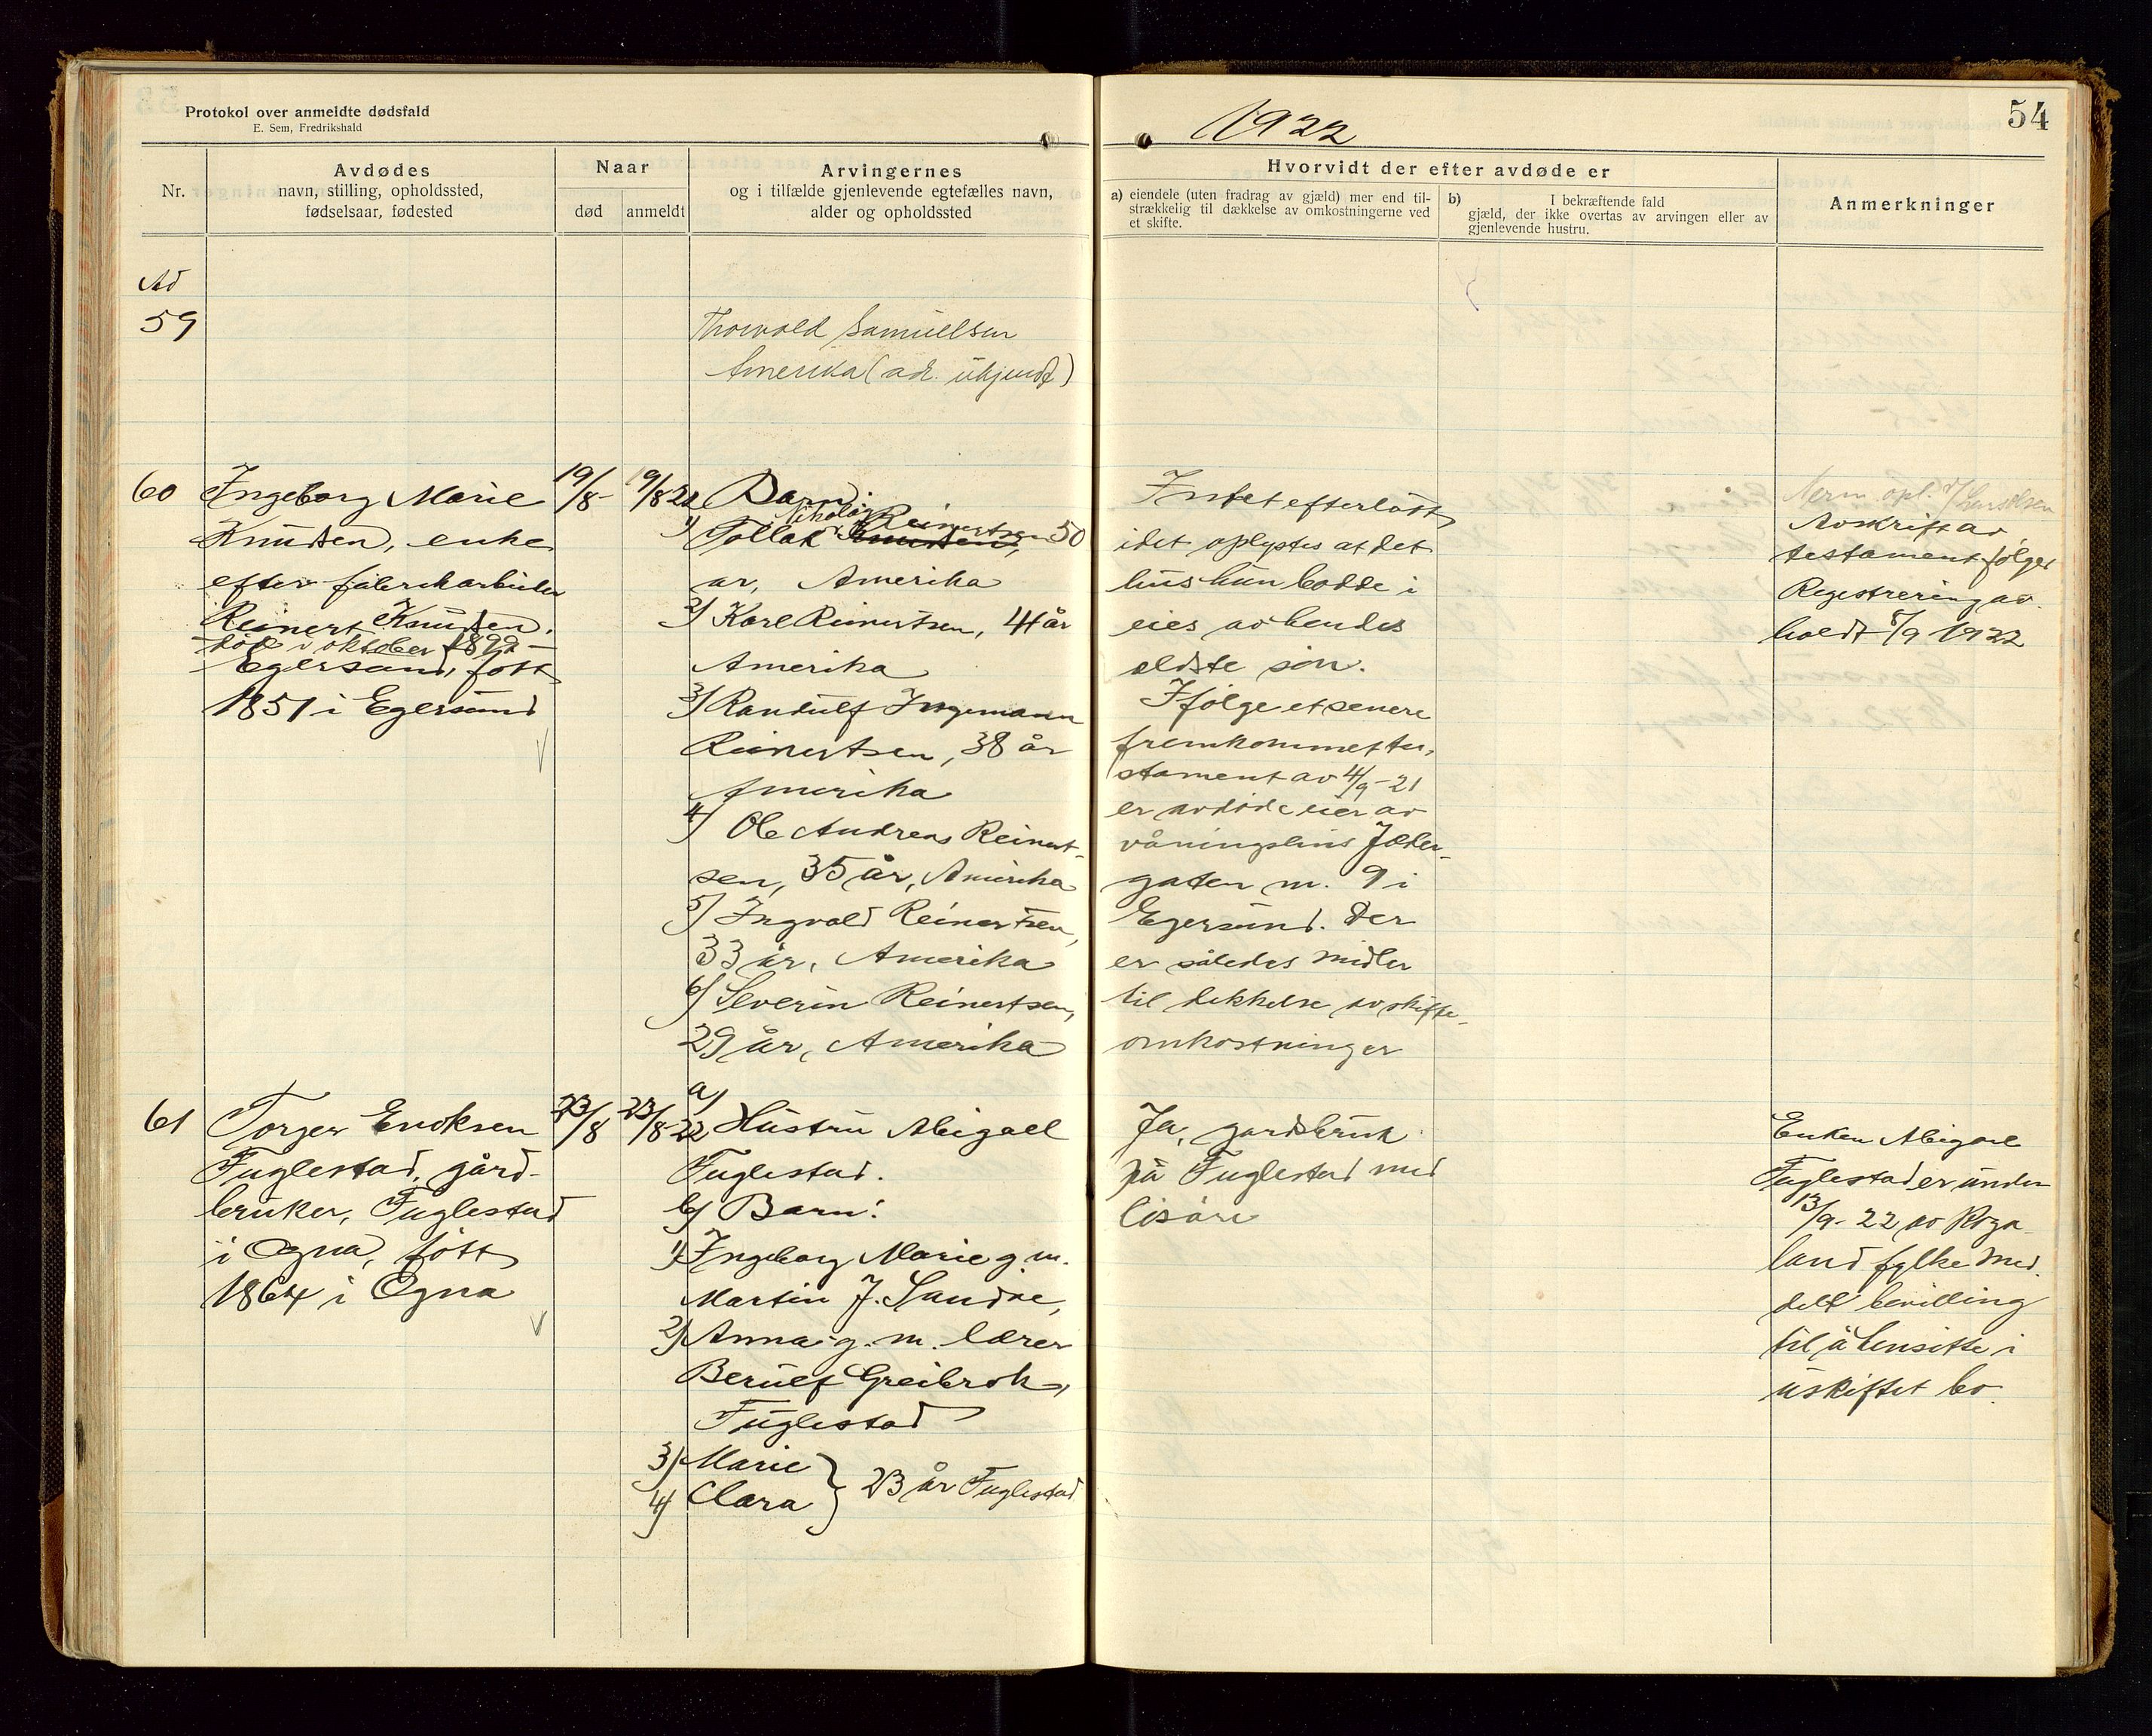 Protokol over anmeldte dødsfald
E. Sem, Fredrikshald
1922
54
Nr.
Avdødes
navn, stilling, opholdssted,
fødselsaar, fødested
Naar
død
anmeldt
Arvingernes
og i tilfælde gjenlevende egtefælles navn,
alder og opholdssted
Hvorvidt der efter avdøde er
a) eiendele (uten fradrag av gjæld) mer end til-
strækkelig til dækkelse av omkostningerne ved
et skifte.
b) I bekræftende fald
gjæld, der ikke overtas av arvingen eller av
gjenlevende hustru.
Anmerkninger
Ad
59
Thorvald Samuelsen
Amerika (adr. ukjendt)
60
Ingeborg Marie
Knudsen, enke
efter fabrikarbeider
Reinert Knudsen,
død i oktober 1892
Egersund, født
1851 i Egersund
19/8
19/8 22
Barn:
1) Tollak Nikolai Reinertsen 50
år, Amerika
2) Karl Reinertsen, 41 år
Amerika
3) Randulf Ingemann
Reinertsen, 38 år
Amerika
4) Ole Andreas Reinert-
sen, 35 år, Amerika
5) Ingvald Reinertsen,
33 år, Amerika
6) Severin Reinertsen,
29 år, Amerika
Intet efterlatt
idet oplystes at det
hus hun bodde i
eies av hendes
eldste søn.
Ifølge et senere
fremkommet te-
stament av 4/9-21
er avdøde eier av
våningshus Jæder-
gaten nr. 9 i
Egersund. Der
er således midler
til dekkelse av skifte-
omkostninger
Avskrift av
testament følger
Registrering av-
holdt 8/9 1922
61
Torger Eriksen
Fuglestad, gård-
bruker, Fuglestad
i Ogna, født
1864 i Ogna
23/8
23/8 22
a)
Hustru Abigael
Fuglestad.
b) Barn:
1) Ingeborg Marie g. m.
Martin J. Sandve,
2) Anna g. m. lærer
Berulf Greibrok,
Fuglestad
3) Marie
4) Clara } 23 år Fuglestad
Ja, gardsbruk
på Fuglestad med
løsøre
Enken Abigael
Fuglestad er under
13/9-22 av Roga-
land fylke med-
delt bevilling
til å hensitte i
uskiftet bo.